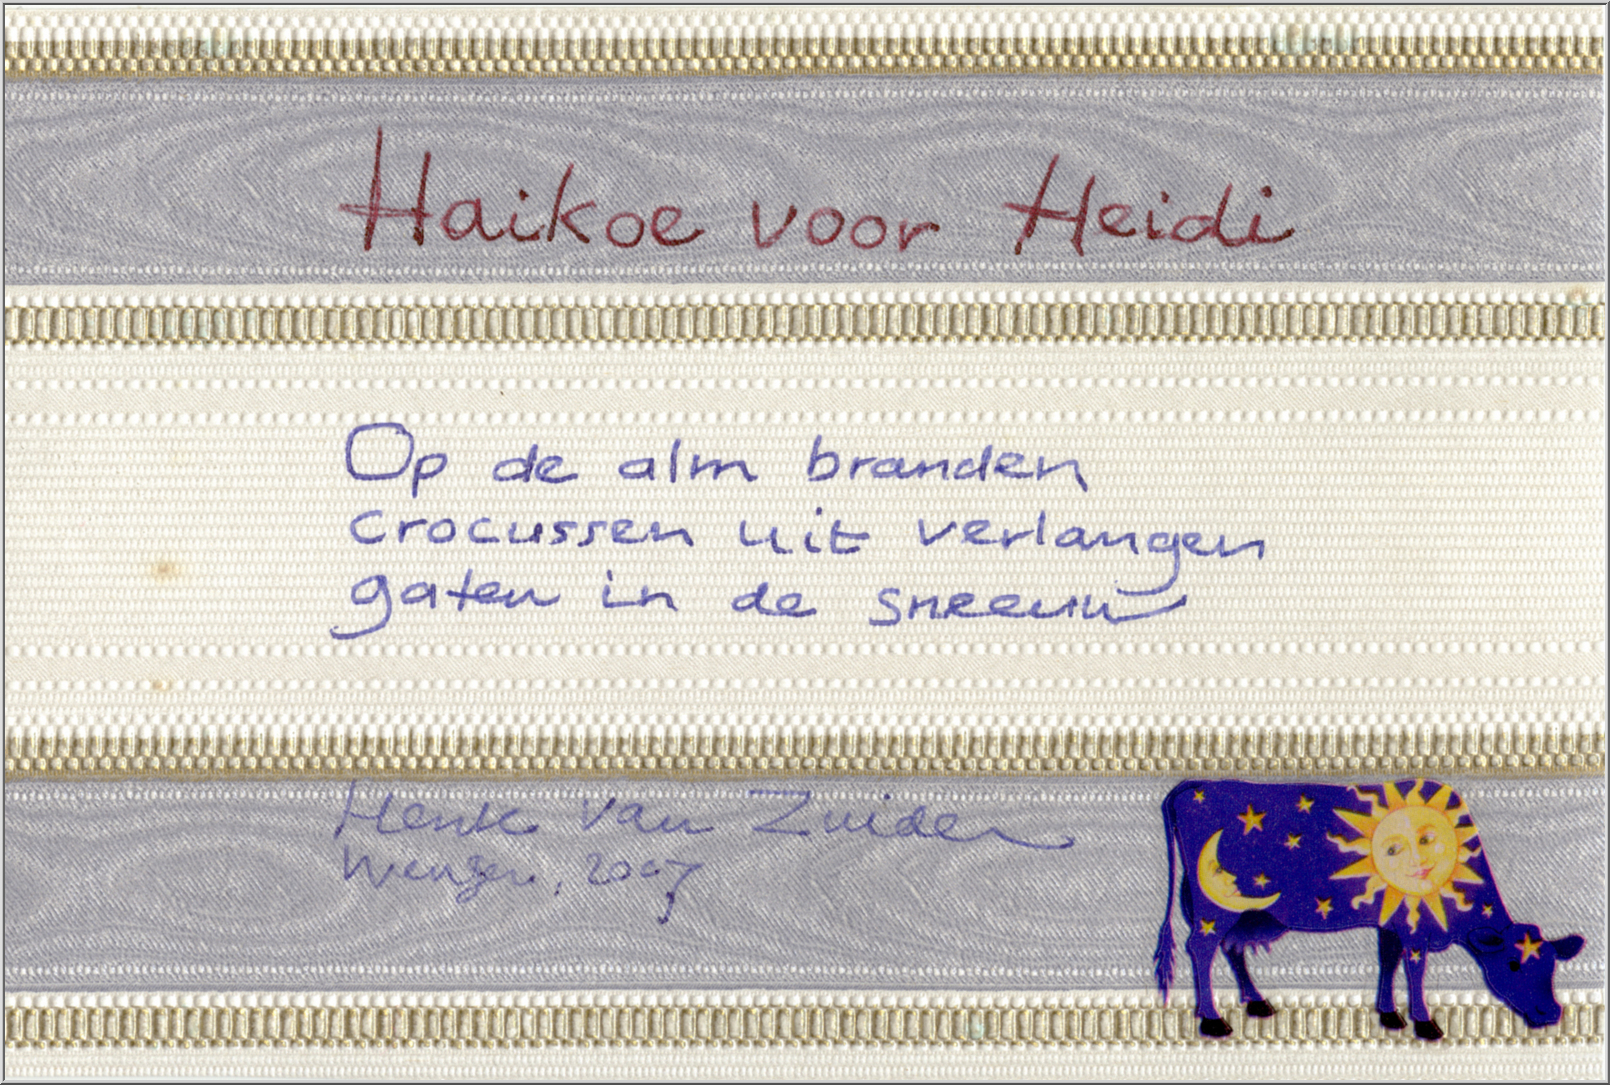 Haikoe voor Heidi
Op de alm branden
crocussen uit verlangen
gaten in de sneeuw
Henk van Zuiden
Wengen, 2007